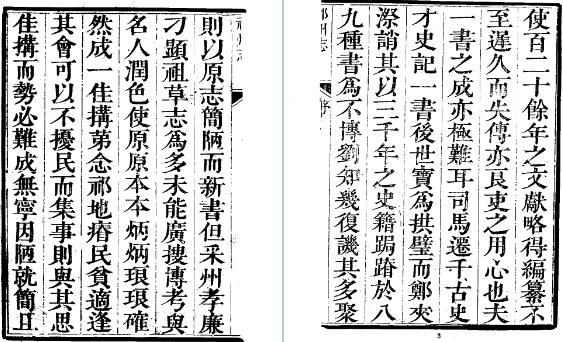 使百二十餘年之文獻略得編纂不
至遲久而失傳亦良吏之用心也夫
一書之成亦極難耳司馬遷千古史
才史記一書後世寶爲拱璧而鄭夾
漈誚其以三千年之史籍跼蹐於八
九種書爲不傳劉知幾復譏其多聚
祁州志
序
則以原志簡陋而新書但采州孝廉
刁顯祖草志爲多未能廣搜博考與
名人潤色使原原本本炳炳琅琅確
然成一佳搆第念祁地瘠民貧適逢
其會可以不擾民而集事則與其思
佳搆而勢必難成無寧因陋就簡且